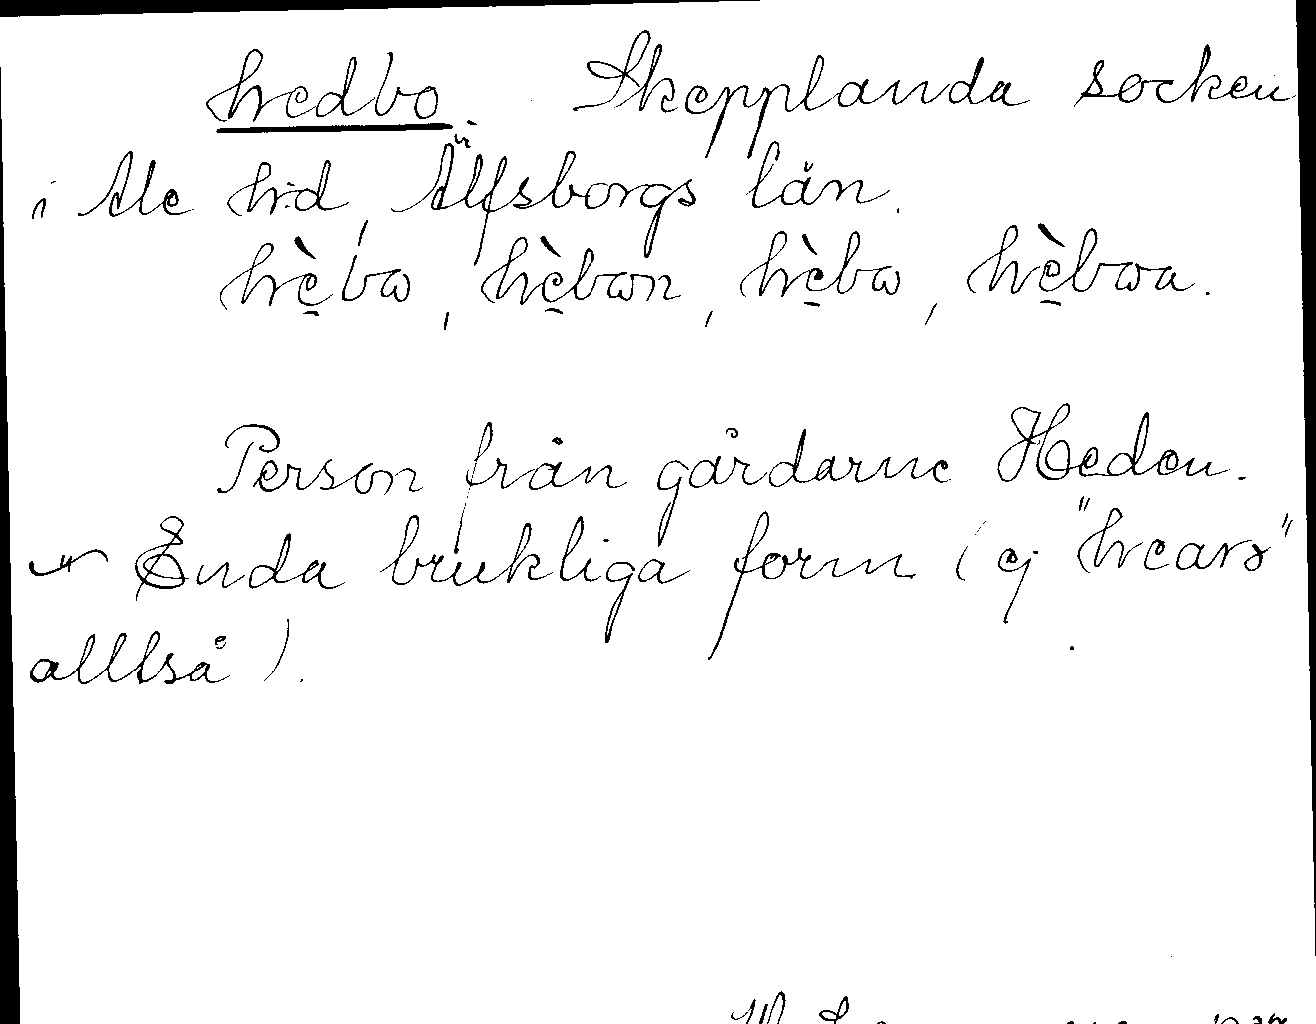 hedbo. Skepplanda socken
i Ale hd, Älfsborgs län.
hè̱bω, hè̱bωn, hè̱bω, hè̱bωa.
Person från gårdarne Heden.
Enda brukliga form (ej "hears"
alltså).